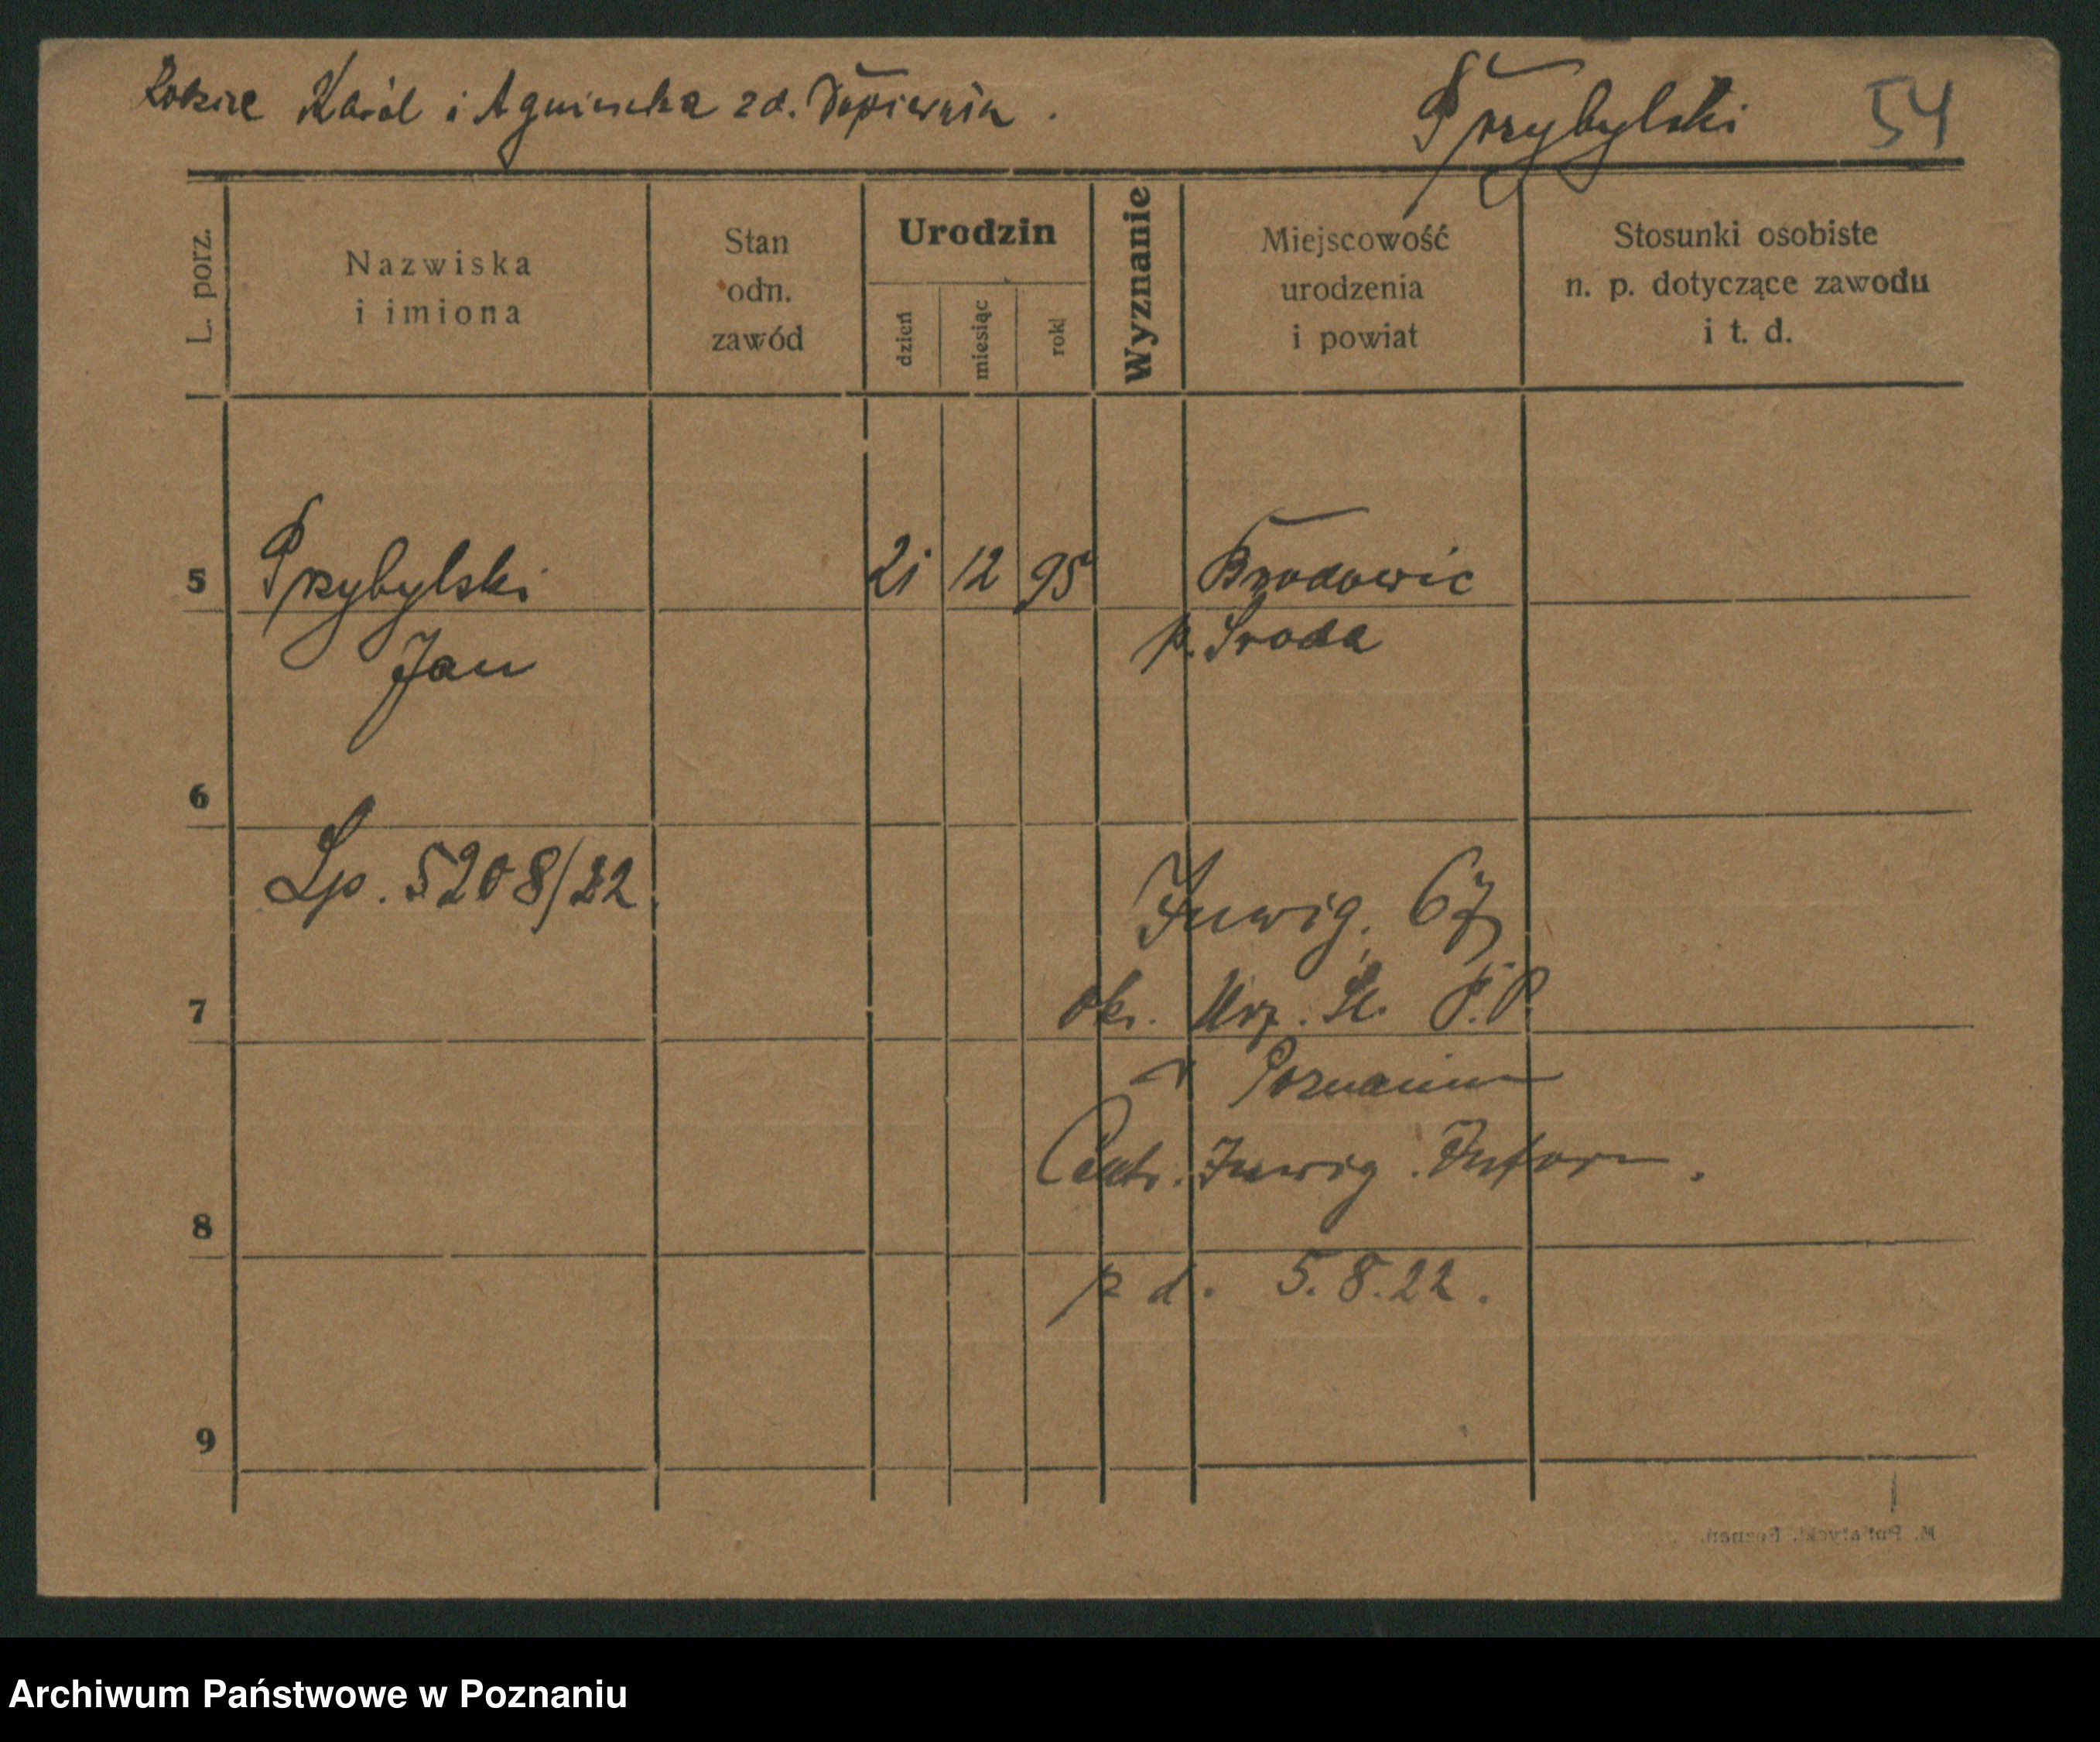 Rodzice Karól i Agnieszka zd.
Przybylski 54
L. porz.
Nazwiska
i imiona
Stan
odn.
zawód
Urodzin
dzień
miesiąc
rok
Wyznanie
Miejscowość
urodzenia
i powiat
Stosunki osobiste
n. p. dotyczące zawodu
i t. d.
5 Przybylski 21 12 95 Brodowic
Jan p. Sroda
6
Lp. 5208/22 Inwig. 67
7 Okr. Urz. Śl. P.P.
w Poznaniu
Centr. Inwig. Inform.
8
p d. 5.8.22.
9
Archiwum Państwowe w Poznaniu